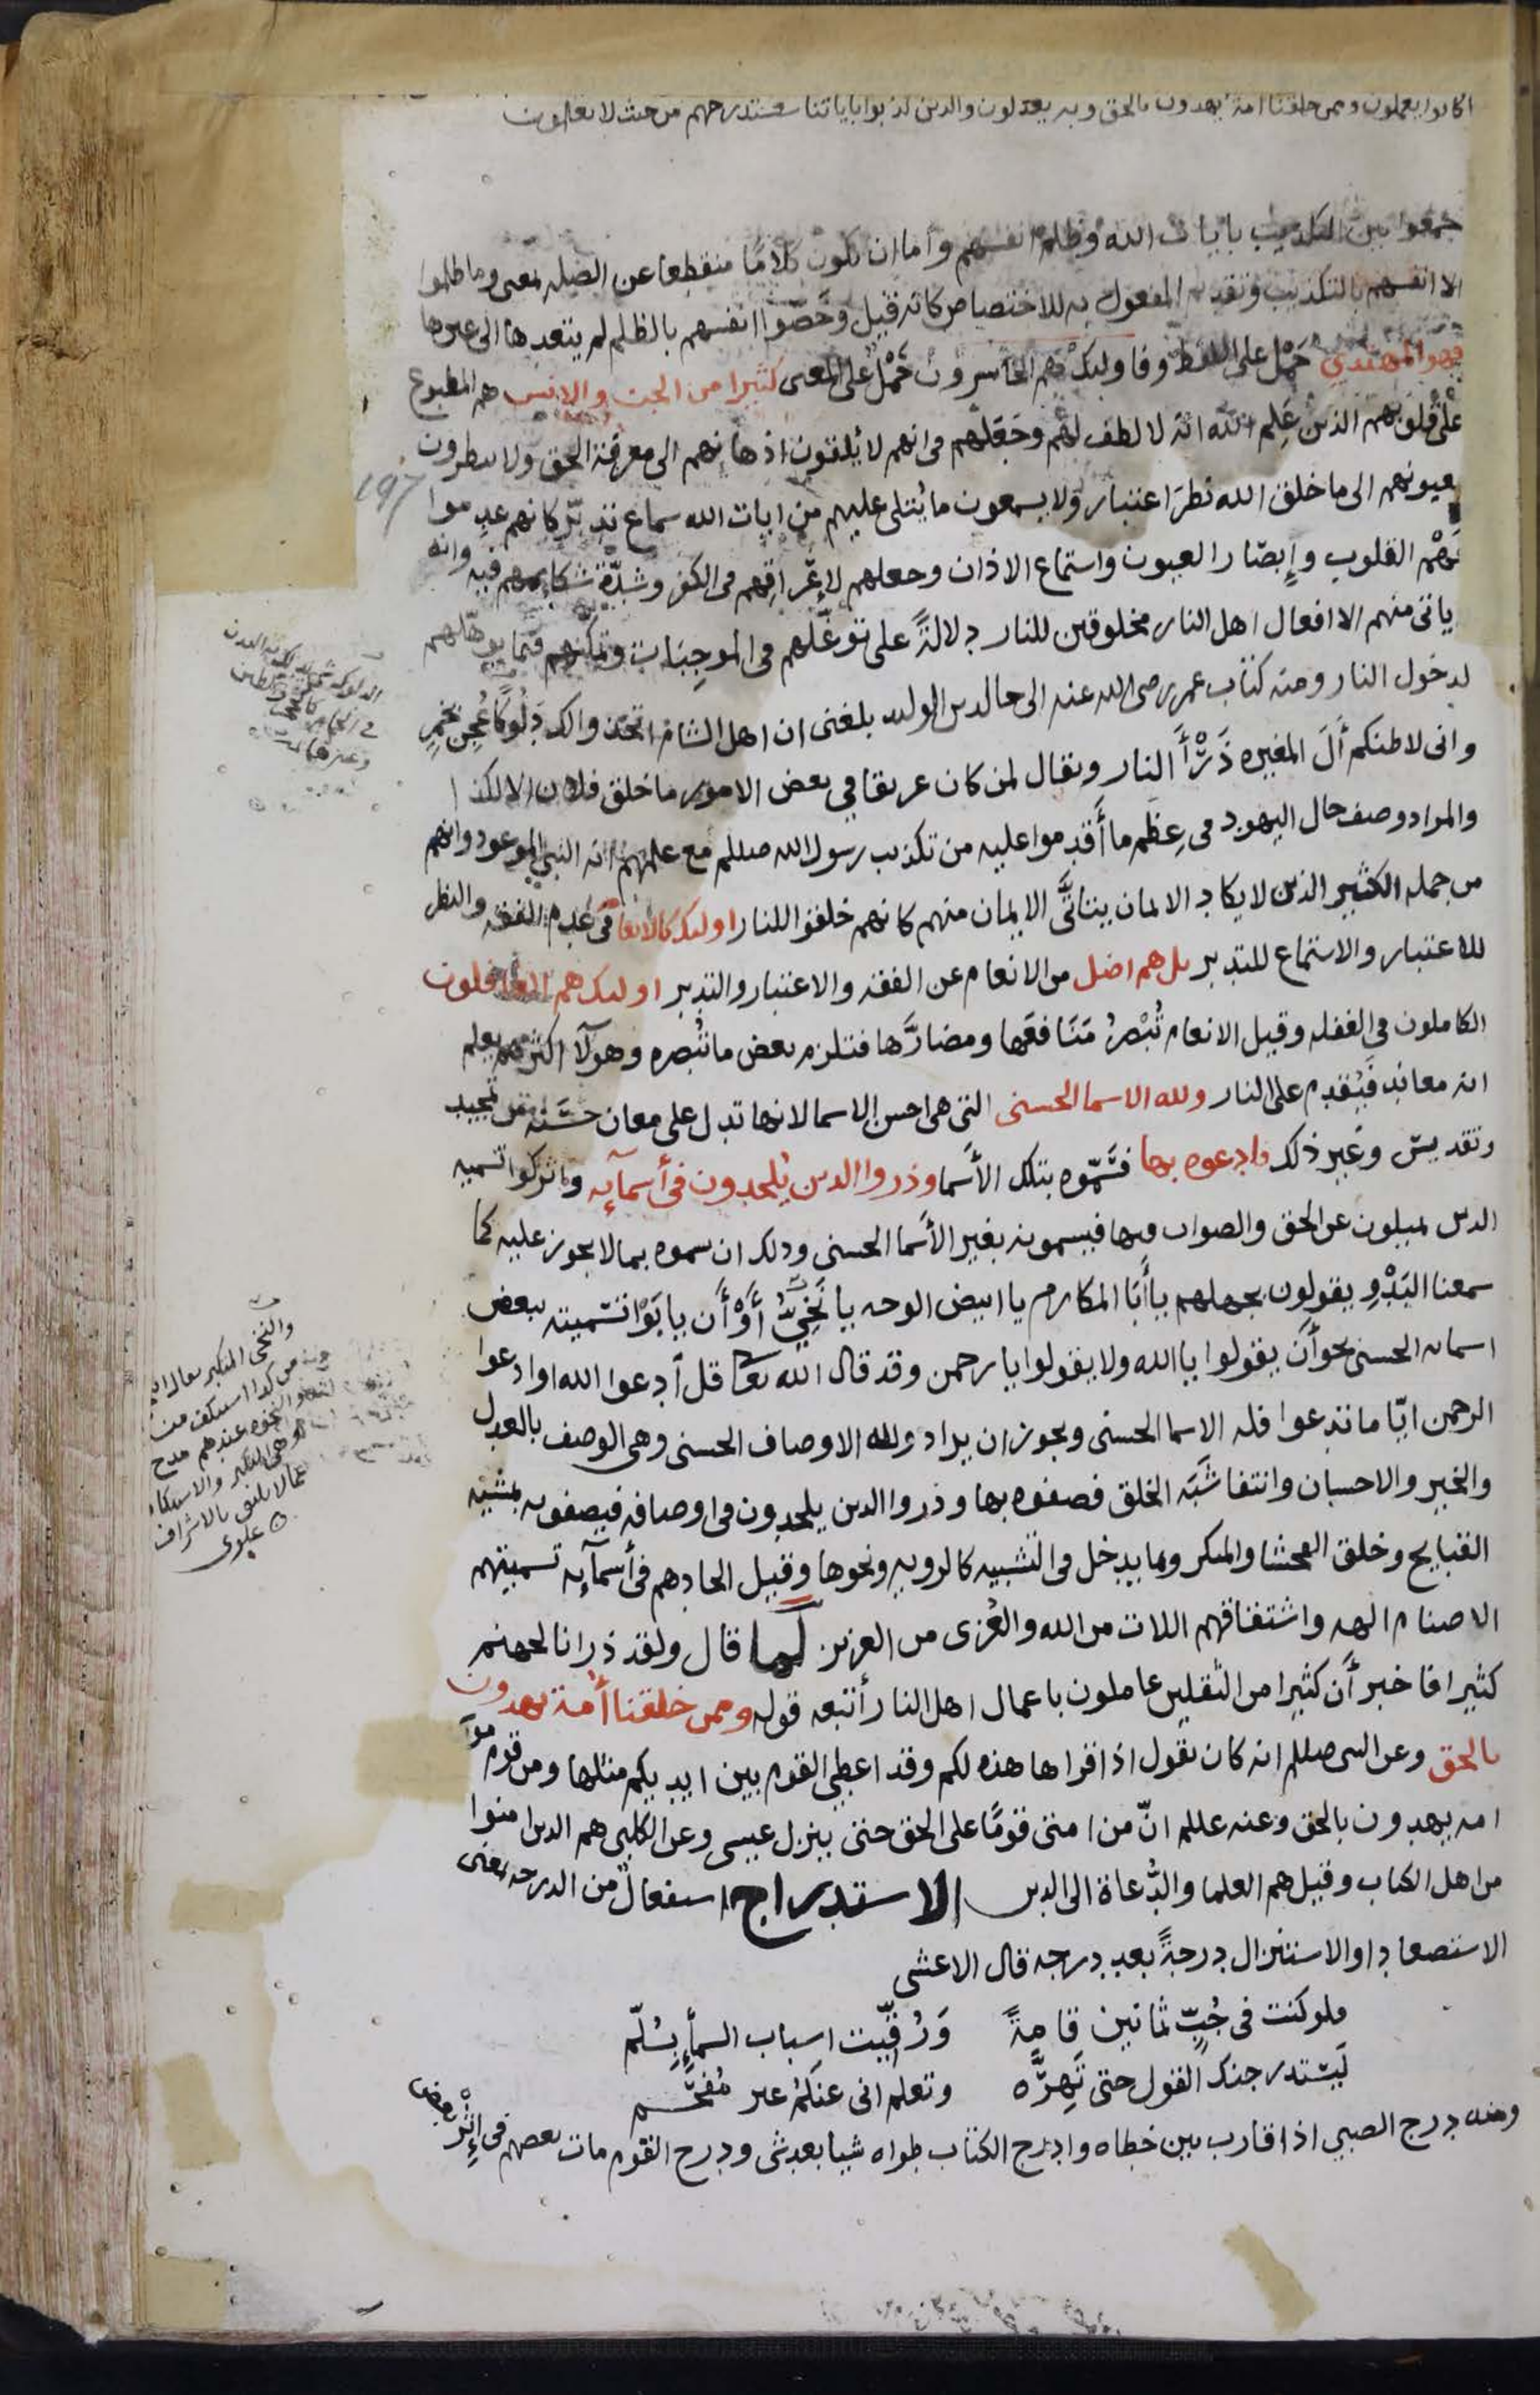 كانوا يعملون وممن خلقنا امة يهدون بالحق وبه يعدلون والذين كذبوا باياتنا سنستدرجهم من حيث لا يعلمون
جمعوا بين التكذيب بايات الله وظلم انفسهم واما ان تكون كلامًا منقطعا عن الصله بمعنى وما ظلموا
الا انفسهم بالتكذيب وتقديم المفعول به للاختصاص كانه قيل وخَصّوا انفسهم بالظلم لم يتعدها الى غيرها
فهو المهتدي حَمْل على اللفظ وفاوليك هم الخاسرون حَمْلٌ على المعنى كثيرا من الجن والانس هم المطبوع
على قلوبهم الذين عَلِم الله انه لا لطف لهم وجَعَلَهم فى انهم لا يُلقون اذهانهم الى معرفة الحق ولا ينظرون
بعيونهم الى ما خلق الله نظرَ اعتبار ولا يسمعون ما يُتلى عليهم من ايات الله سماع تدبّر كانهم عدموا
فَهْم القلوب وإبصَار العيون واستماع الاذان وجعلهم لاعْراقِهم فى الكفر وشدّة شكايمهم فيه وانه
لا ياتى منهم الا افعال اهل النار مخلوقين للنار دلالةً على توغّلهم فى الموجِبَات وتمكنهم فيما يوهّلهم
لدخول النار ومنه كتاب عمر رضى الله عنه الى خالد بن الوليد بلغنى ان اهل الشام اتخذوا لك دَلُوكًا عُجِن بخمرٍ
وانى لاظنكم آلَ المغيره ذَرْأَ النار ويقال لمن كان عريقا في بعض الامور ما خلق فلان الا لكذا
والمراد وصف حال اليهود فى عِظَم ما أَقدموا عليه من تكذيب رسول الله صللم مع علمهم انه النبي الموعود وانهم
من جمله الكثير الذين لا يكاد الايمان يتاتَّى منهم كانهم خلقوا للنار اوليك كالانعام فى عَدِم الفقه والنظر
للاعتبار والاستماع للتدبر بل هم اضل من الانعام عن الفقه والاعتبار والتدبر اوليك هم الغافلون
الكاملون فى الغفله وقيل الانعام تُبْصرُ مَنَافعَها ومضارَّها فتلزم بعض ما تُبصره وهولآ اكثرهم يعلم
انه معاند فيُقدِم على النار ولله الاسما الحسنى التى هى احسن الاسما لانها تدل على معان حَسَنه من تمجيد
وتقديس وغير ذلك فادعوه بها فسَّمّوه بتلك الأسما وذروا الذين يُلحدون فى أسمآيه واتركوا تسميه
الذين يميلون عن الحق والصواب فيها فيسمونه بغير الأسما الحسنى وذلك ان سموه بما لا يجوز عليه كما
سمعنا البَدْوِ يقولون بجهلهم ياأَبَا المكارم يا ابيض الوجه يا نَخِيُّ أَوْ أَن يابَوْا تسميته ببعض
اسمايه الحسنى نحو أَن يقولوا ياالله ولا يقولوا يا رحمن وقد قال الله تعا قل أدعوا الله او ادعوا
الرحمن ايّا ما تدعوا فله الاسما الحسنى ويجوز ان يراد ولله الاوصاف الحسنى وهى الوصف بالعدل
والخير والاحسان وانتفا شَبَه الخلق فصفوه بها وذروا الذين يلحدون فى اوصافه فيصفونه بمشيّه
القبايح وخلق الفحشا والمنكر وبما يدخل فى التشبيه كالرويه ونحوها وقيل الحادهم فى أسمآيه تسميتهم
الاصنام الهه واشتقاقهم اللات من الله والعُزى من العزيز لما قال ولقد ذرانا لجهنم
كثيرا فاخبر أَن كثيرا من الثّقلين عاملون باعمال اهل النار أتبعه قوله وممن خلقنا أُمة يهدون
بالحق وعن النبى صللم انه كان يقول اذا قراها هذه لكم وقد اعطي القوم بين ايديكم مثلها ومن قوم موسى
امه يهدون بالحق وعنه عللم انّ من امتى قومًا على الحق حتى ينزل عيسى وعن الكلبى هم الذين امنوا
من اهل الكتاب وقيل هم العلما والدُّعاة الى الدين الاستدراج استفعال من الدرجه بمعنى
الاستصعاد او الاستنزال درجةً بعد درجه قال الاعشى
فلو كنت فى جُبّ ثمانين قامةً وَرُقّيت اسباب السمآء بسُلّم
لَيستدرجنك القول حتى تَهِرَّه وتعلم انى عنكُم غير مُفْحَم
ومنه درج الصبي اذا قارب بين خطاه وادرج الكتاب طواه شيا بعد شى ودرج القوم مات بعضهم فى إِثْر بعض
١٩٧
والنخى المتكبر يقال
من كذا استنكف من
والنخوه عندهم مدح
وهى التكبر والاستنكاف
عما لا يليق بالاشراف
علوى